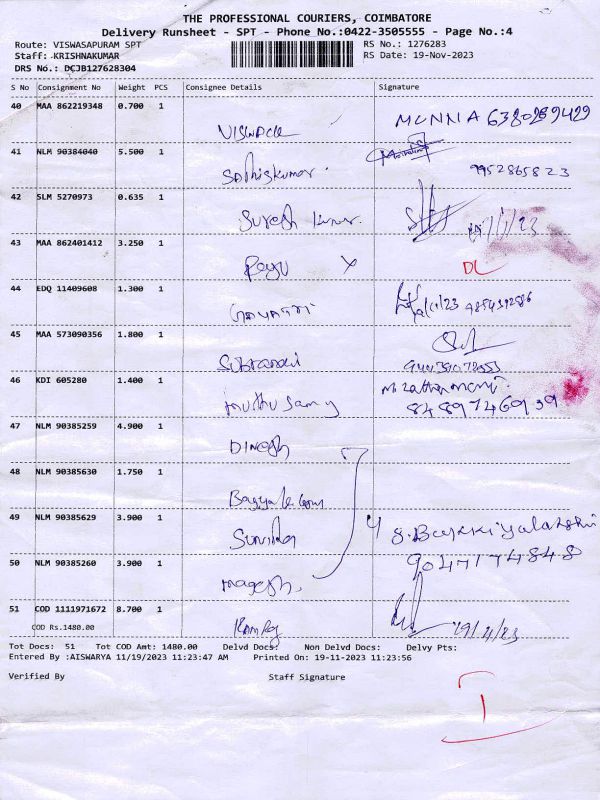 THE PROFESSIONAL COURIERS, COIMBATORE
Delivery Runsheet - SPT - Phone No.:0422-3505555 - Page No.:4
Route: VISWASAPURAM SPT RS No.: 1276283
Staff: KRISHNAKUMAR RS Date: 19-Nov-2023
DRS No.: DCJB127628304
S No Consignment No Weight PCS Consignee Details Signature
40 MAA 862219348 0.700 1 MUNNA 6380289429
41 NLM 90384040 5.500 1 Sathiskumar 9952865823
42 SLM 5270973 0.635 1 Suresh Kumar
43 MAA 862401412 3.250 1 Raju X DL
44 EDQ 11409608 1.300 1
45 MAA 573090356 1.800 1
46 KDI 605280 1.400 1 muthusamy 8489746939
47 NLM 90385259 4.900 1 DINESH
48 NLM 90385630 1.750 1
49 NLM 90385629 3.900 1 4 9047174848
50 NLM 90385260 3.900 1 magesh
51 COD 1111971672 8.700 1 Ramraj
COD Rs.1480.00
Tot Docs: 51 Tot COD Amt: 1480.00 Delvd Docs: Non Delvd Docs: Delvy Pts:
Entered By :AISWARYA 11/19/2023 11:23:47 AM Printed On: 19-11-2023 11:23:56
Verified By Staff Signature